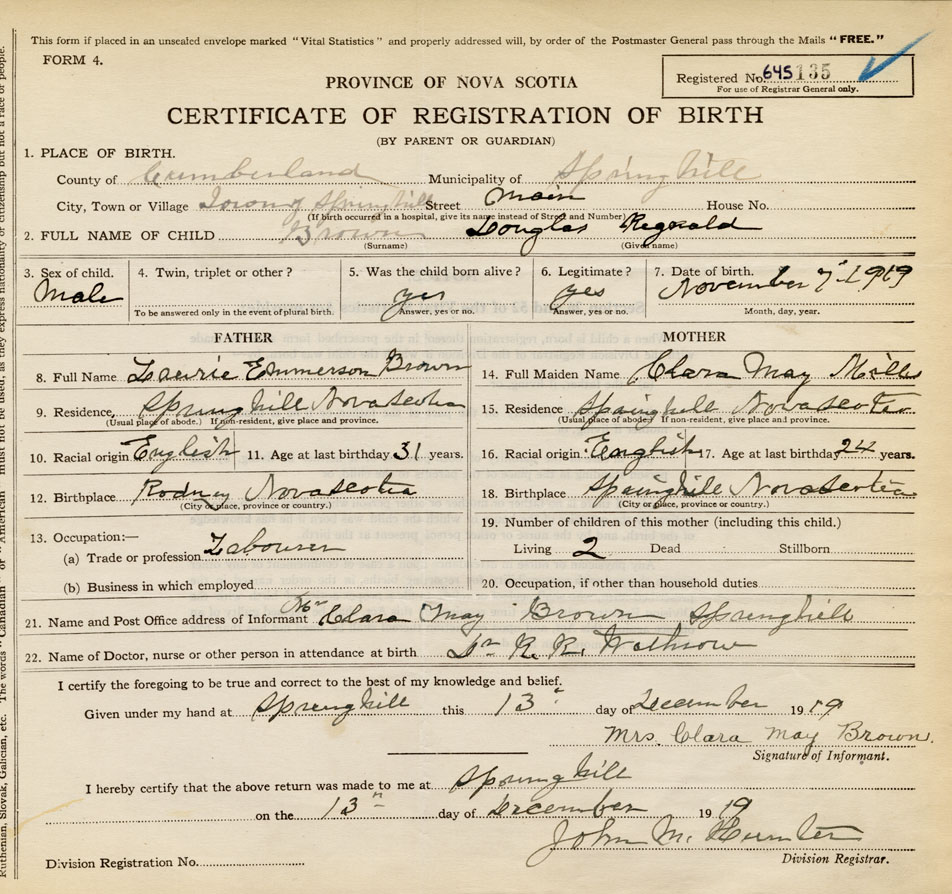 This form if placed in an unsealed envelope marked "Vital Statistics" and properly addressed will, by order of the Postmaster General pass through the Mails "FREE."
FORM 4.
Registered No. 645135
For use of Registrar General only.
PROVINCE OF NOVA SCOTIA
CERTIFICATE OF REGISTRATION OF BIRTH
(BY PARENT OR GUARDIAN)
1. PLACE OF BIRTH.
County of Cumberland Municipality of Springhill
City, Town or Village Springhill Street Main House No.
(If birth occurred in a hospital, give its name instead of Street and Number)
2. FULL NAME OF CHILD Brown Douglas Reginald
(Surname) (Given name)
3. Sex of child. 4. Twin, triplet or other ? 5. Was the child born alive ? 6. Legitimate ? 7. Date of birth.
Male yes yes November 7th 1919
To be answered only in the event of plural birth. Answer, yes or no. Answer, yes or no. Month, day, year.
FATHER MOTHER
8. Full Name Lawrie Emmerson Brown 14. Full Maiden Name Clara May Mills
9. Residence, Springhill Nova Scotia 15. Residence Springhill Nova Scotia
(Usual place of abode.) If non-resident, give place and province. (Usual place of abode) If non-resident, give place and province.
10. Racial origin English 11. Age at last birthday 31 years. 16. Racial origin English 17. Age at last birthday 24 years.
12. Birthplace Rodney Nova Scotia 18. Birthplace Springhill Nova Scotia
(City or place, province or country.) (City or place, province or country.)
13. Occupation:— 19. Number of children of this mother (including this child.)
(a) Trade or profession Labourer Living 2 Dead Stillborn
(b) Business in which employed 20. Occupation, if other than household duties
21. Name and Post Office address of Informant Mrs Clara May Brown Springhill
22. Name of Doctor, nurse or other person in attendance at birth Dr R. R. Withrow
I certify the foregoing to be true and correct to the best of my knowledge and belief.
Given under my hand at Springhill this 13th day of December 1919
Mrs. Clara May Brown.
Signature of Informant.
I hereby certify that the above return was made to me at Springhill
on the 13th day of December 1919
John M. Hunter
Division Registrar.
Division Registration No.
Ruthenian, Slovak, Galician, etc. The words "Canadian" or "American" must not be used, as they express nationality or citizenship but not a race or people.